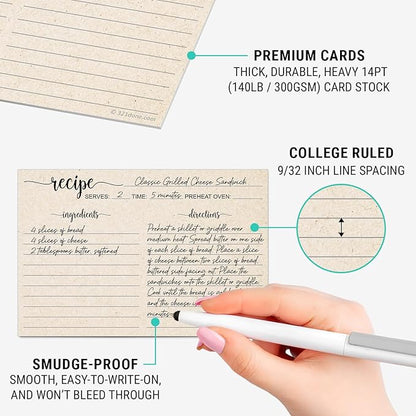 PREMIUM CARDS
THICK, DURABLE, HEAVY 14PT
(140LB / 300GSM) CARD STOCK
© 321done.com
COLLEGE RULED
9/32 INCH LINE SPACING
recipe Classic Grilled Cheese Sandwich
SERVES: 2 TIME: 5 minutes PREHEAT OVEN:
ingredients
4 slices of bread
4 slices of cheese
2 tablespoons butter, softened
directions
Preheat a skillet or griddle over
medium heat. Spread butter on one side
of each slice of bread. Place a slice
of cheese between two slices of bread,
buttered side facing out. Place the
sandwiches onto the skillet or griddle.
Cook until the bread is
and the cheese is
minutes
SMUDGE-PROOF
SMOOTH, EASY-TO-WRITE-ON,
AND WON'T BLEED THROUGH